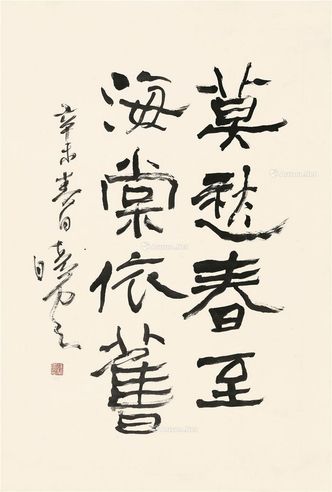 莫愁春至
海棠依舊
辛未春日